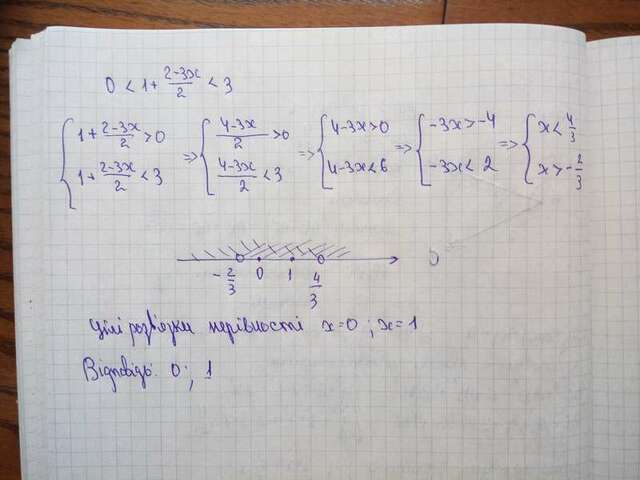 0 < 1 + \frac{2-3x}{2} < 3
{ 1 + \frac{2-3x}{2} > 0 => { \frac{4-3x}{2} > 0 => { 4-3x > 0 => { -3x > -4 => { x < \frac{4}{3}
{ 1 + \frac{2-3x}{2} < 3 { \frac{4-3x}{2} < 3 { 4-3x < 6 { -3x < 2 { x > -\frac{2}{3}
-\frac{2}{3} 0 1 \frac{4}{3}
Цілі розв'язки нерівності x=0; x=1
Відповідь: 0; 1